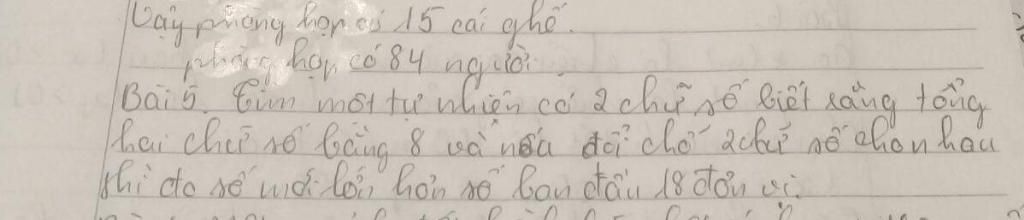 Vậy phòng họp có 15 cái ghế.
phòng họp có 84 người.
Bài 5. Tìm một tự nhiên có 2 chữ số biết rằng tổng
hai chữ số bằng 8 và nếu đổi chỗ 2 chữ số cho nhau
thì số mới lớn hơn số ban đầu 18 đơn vị.